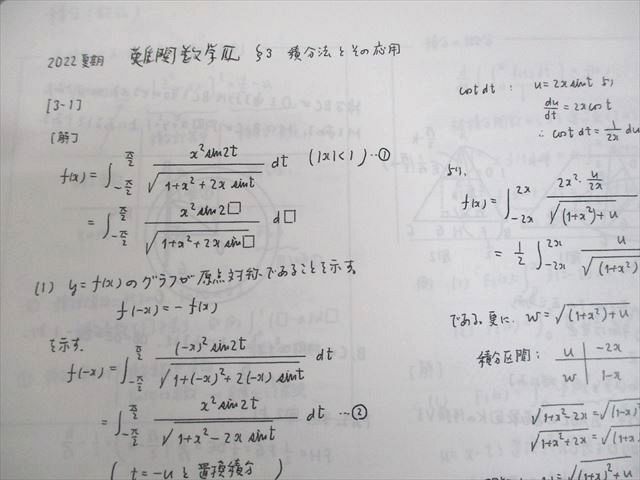 2022 夏期 難関数学Ⅲ §3 積分法とその応用
[3-1]
[解]
f(x) = ∫_{-π/2}^{π/2} x² sin2t / √(1+x²+2x sint) dt (|x|<1) …①
= ∫_{-π/2}^{π/2} x² sin2□ / √(1+x²+2x sin□) d□
(1) y=f(x)のグラフが原点対称であることを示す。
f(-x) = -f(x)
を示す。
f(-x) = ∫_{-π/2}^{π/2} (-x)² sin2t / √(1+(-x)²+2(-x) sint) dt
= ∫_{-π/2}^{π/2} x² sin2t / √(1+x²-2x sint) dt …②
( t=-u と置換積分 )
cost dt : u=2x sint より
du/dt = 2x cost
∴ cost dt = 1/2x du
より,
f(x) = ∫_{-2x}^{2x} 2x²・u/2x / √((1+x²)+u)
= 1/2 ∫_{-2x}^{2x} u / √((1+x²)
である。更に, w = √((1+x²)+u)
積分区間: u | -2x
w | 1-x
√(1+x²-2x) = √((1-x)²
√(1+x²+2x) = √((1+x)
= √((1+x²)+u